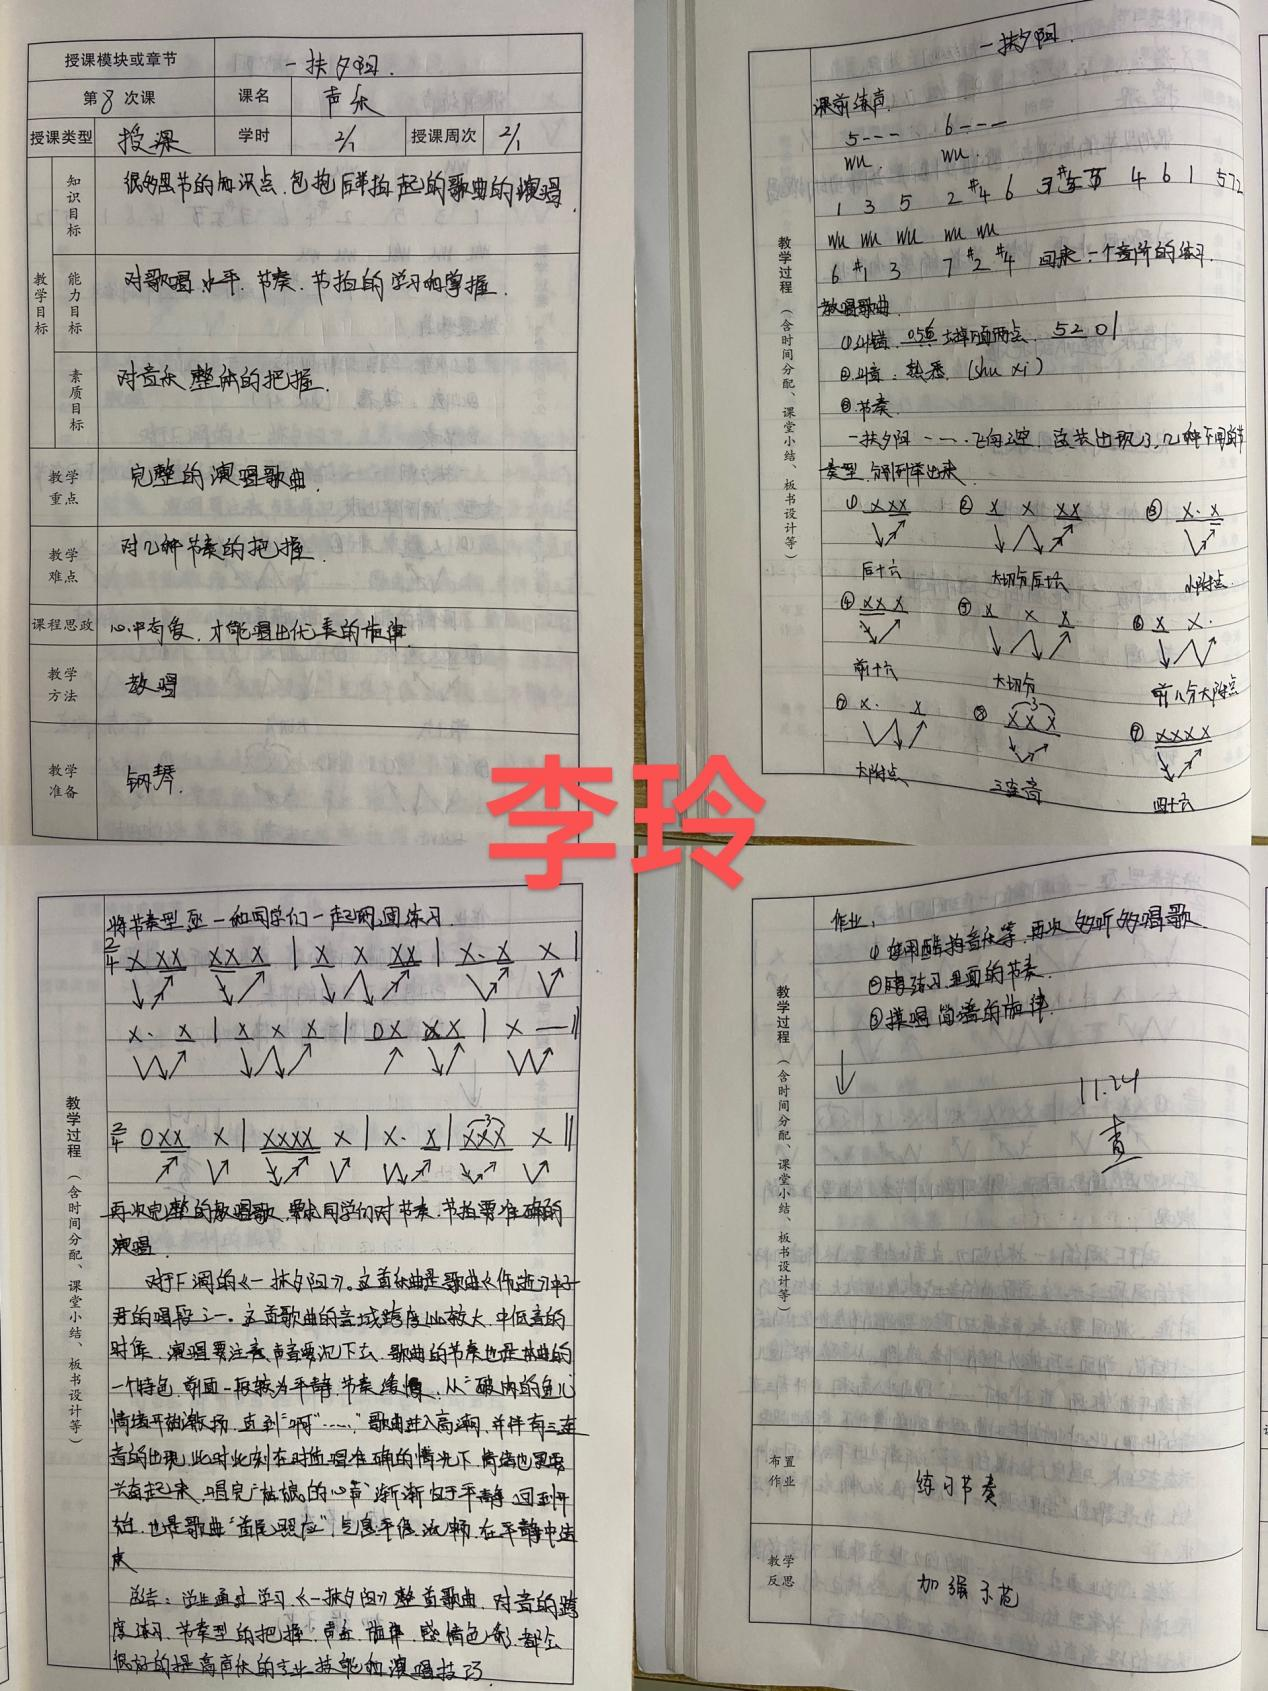 授课模块或章节 一抹夕阳.
第 8 次课 课名 声乐
授课类型 授课 学时 2/1 授课周次 2/1
教学目标
知识目标 很多思节的知识点、包抱后半拍起的歌曲的演唱.
能力目标 对歌唱水平、节奏、节拍的学习和掌握.
素质目标 对音乐整体的把握.
教学重点 完整的演唱歌曲.
教学难点 对几种节奏的把握.
课程思政 心中有象,才能唱出优美的旋律.
教学方法 教唱
教学准备 钢琴.
一抹夕阳.
教学过程(含时间分配、课堂小结、板书设计等)
课前练声.
5--- 6---
wu. wu.
1 3 5 2 #4 6 4 6 1 5 7 2
wu wu wu wu wu
6 #1 3 7 #2 #4 回来一个音阶的练习.
教唱歌曲.
①纠错. 去掉下面两点. 5 2 0 |
②纠音:熟悉.(shu xi)
③节奏.
一抹夕阳……飞向天空.这其出现了几种不同的节
奏型,分别列举出来.
① XXX ② X X XX ③ X. X
后十六 大切分后十六 小附点.
④ XXX ⑤ X X X ⑥ X X.
前十六 大切分 前八分大附点
⑦ X. X ⑧ 3 XXX ⑨ XXXX
大附点 三连音 四十六
将节奏型 一和同学们一起巩固练习.
2/4 X XX XX X | X X XX | X. X X ‖
X. X | X X X | 0X XX | X — ‖
2/4 0XX X | XXXX X | X. X | 3 XXX X ‖
再次完整的教唱歌,要求同学们对节奏、节拍要准确的
演唱.
对于F调的《一抹夕阳》.这首乐曲是歌曲《伤逝》中子
君的唱段之一。这首歌曲的音域跨度比较大.中低音的
时候,演唱要注意声音要沉下去.歌曲的节奏也是本曲的
一个特色.前面一段较为平静.节奏缓慢.从“破网的鱼儿
情绪开始激扬.直到“啊”……”歌曲进入高潮.并伴有三连
音的出现,此时此刻在时值唱准确的情况下.情绪也要
兴奋起来.唱完“姑娘的心声”渐渐归于平静.回到开
始.也是歌曲“首尾照应”,气息平稳、流畅.在平静中结
束
总结:学生通过学习《一抹夕阳》整首歌曲.对音的跨
度练习.节奏型的把握.声音、旋律、感情色彩.都会
很好的提高声乐的专业技能和演唱技巧.
教学过程(含时间分配、课堂小结、板书设计等)
作业:
①使用酷狗音乐等.再次多听多唱歌.
②再练习里面的节奏.
③模唱简谱的旋律.
11.24
查
布置作业 练习节奏
教学反思 加强示范
教学过程(含时间分配、课堂小结、板书设计等)
李玲